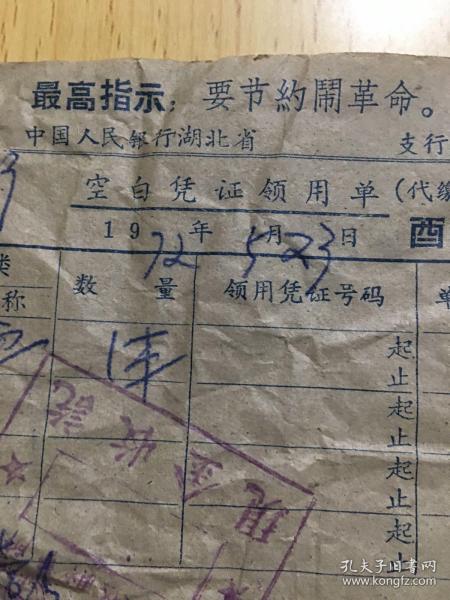 最高指示：要节約鬧革命。
中国人民银行湖北省 支行
空白凭证领用单（代缴
1972年5月23日 酉
类
称 数量 领用凭证号码 单
1本 起
止
起
止
起
止
起
止
现金收訖
孔夫子旧书网
www.kongfz.com